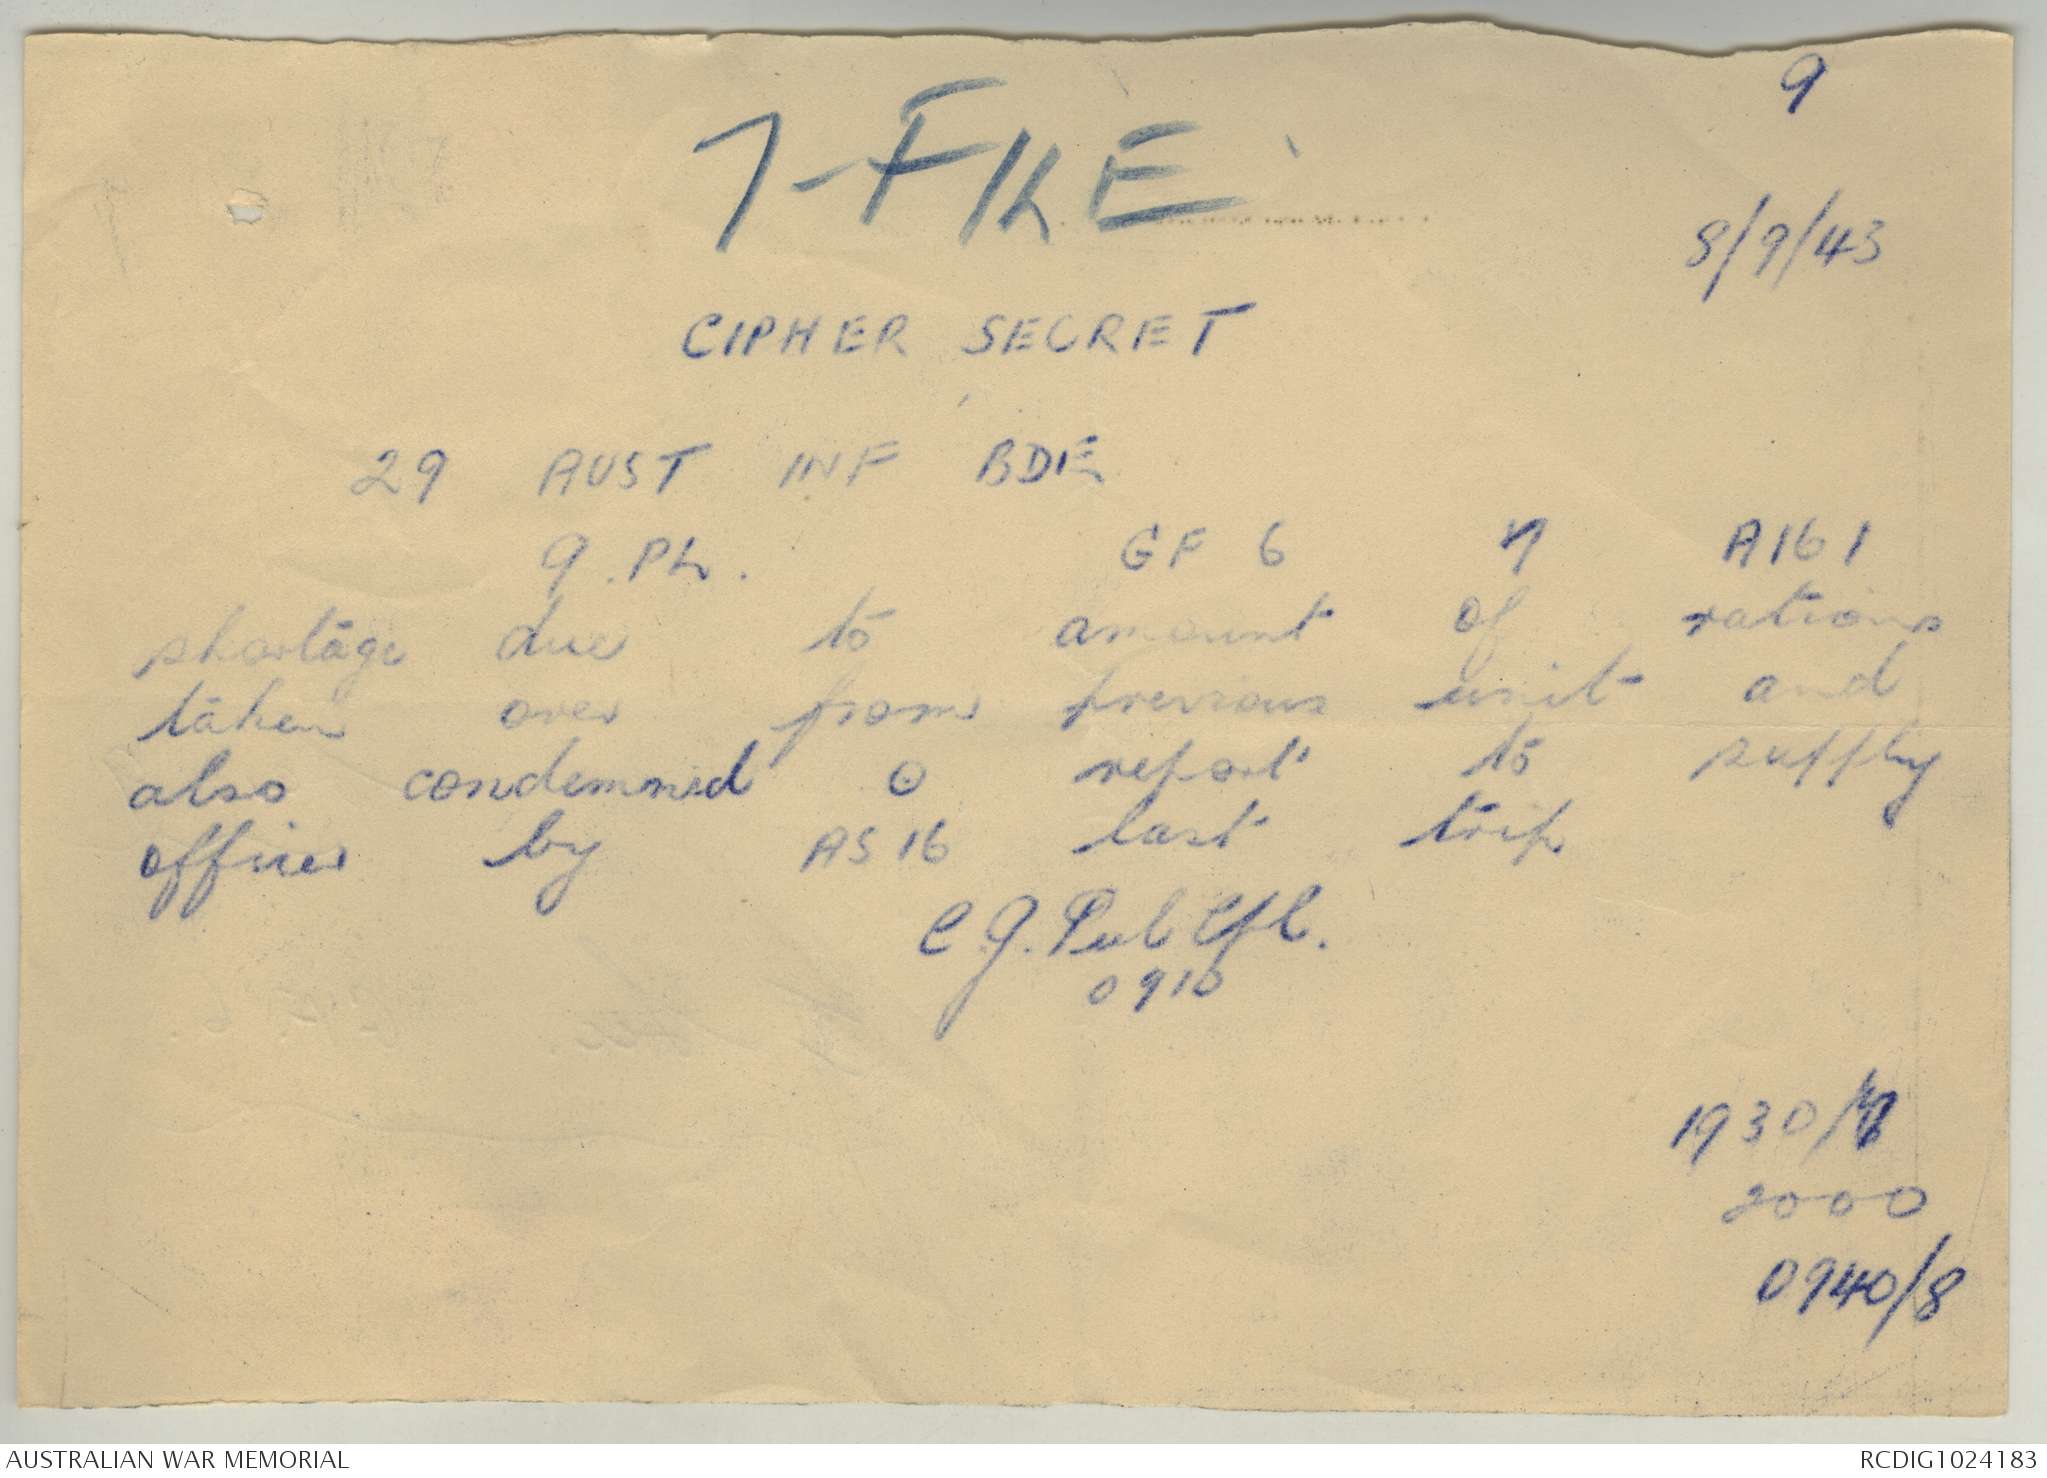 9
7-FILE
8/9/43
CIPHER SECRET
29 AUST INF BDE
9.PL. GF 6 7 A161
shortage due to amount of rations
taken over from previous unit and
also condemned ⊙ report to supply
officer by AS16 last trip
C.J. Cpl.
0910
1930/7
2000
0940/8
AUSTRALIAN WAR MEMORIAL
RCDIG1024183